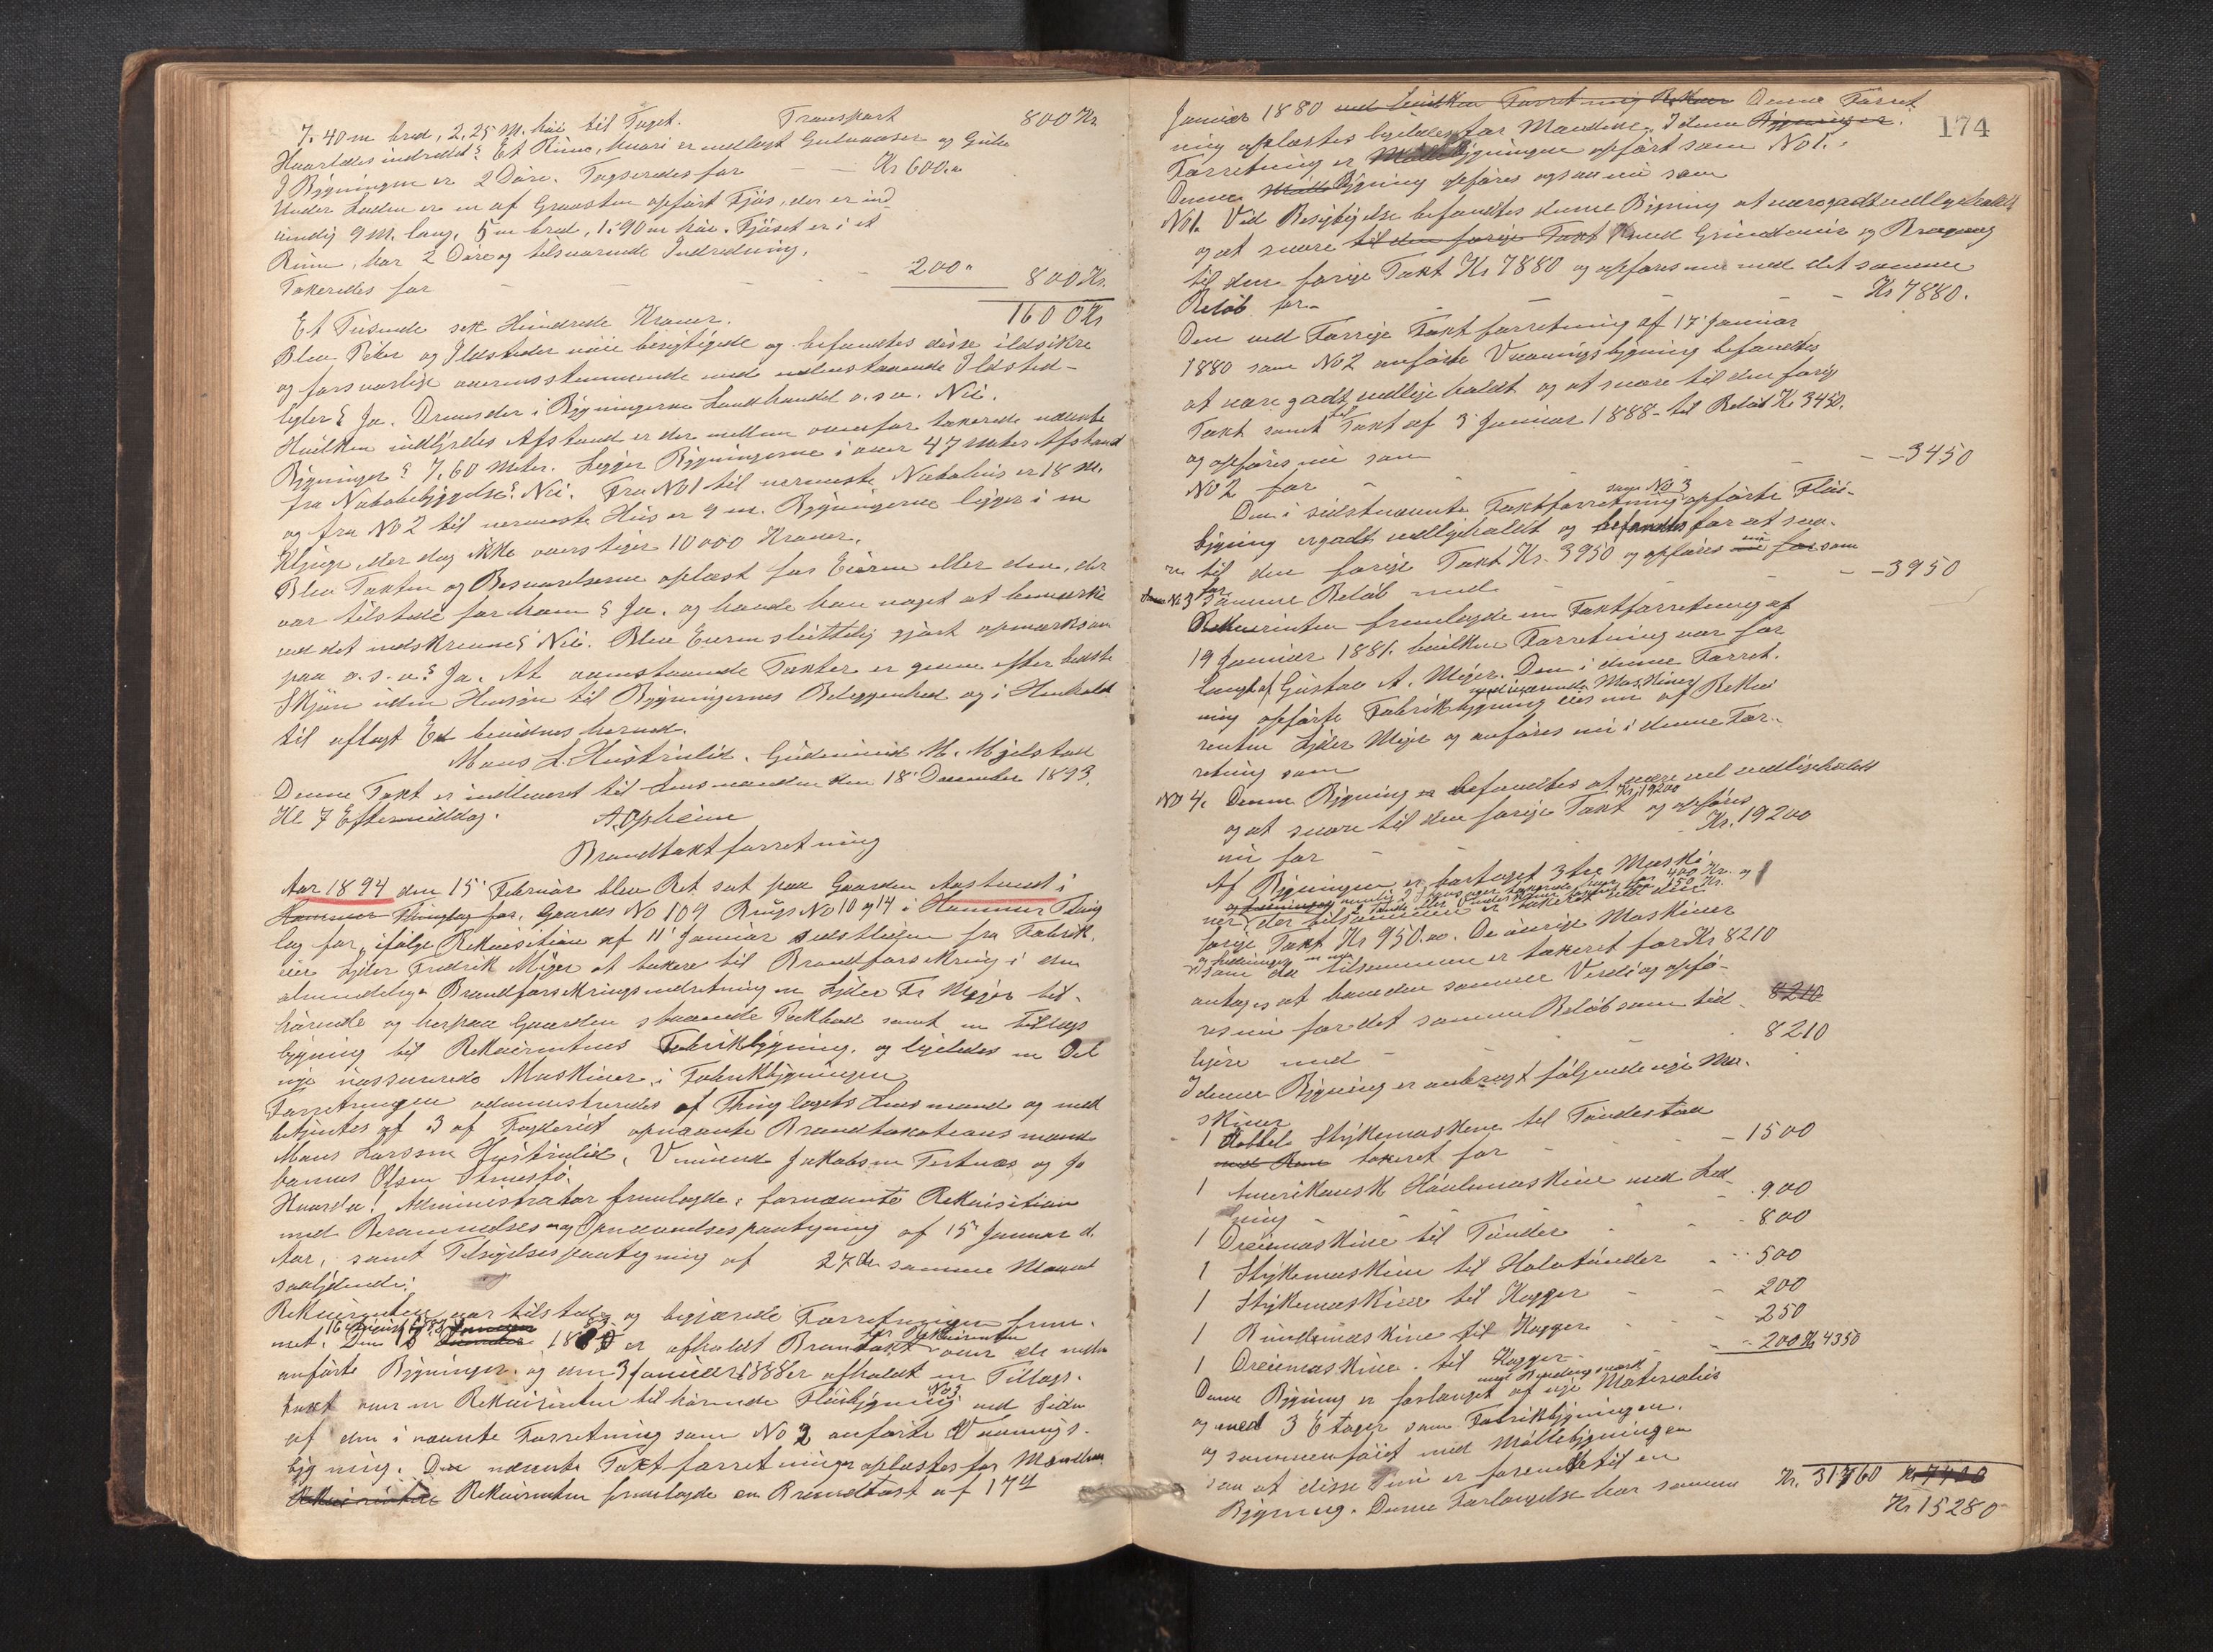 7.40 m bred, 2,25 M. høi til Taget. Transport 800 Kr.
Hvorledes indredet? Et Rum, hvori er nedlagt Gulvaaser og Gulv
I Bygningen er 2 Døre. Taxeredes for — — Kr 600.„
Under Laden er en af Graasten opført Fjøs, der er ind
vendig 9 M. lang, 5 m bred, 1.90 m høi. Fjøset er i et
Rum, har 2 Døre og tilsvarende Indredning.
Taxeredes for - - - - 200 " 800 Kr.
1600 Kr
Et Tusende sex Hundrede Kroner.
Blev Piber og Ildsteder nøie besigtigede og befandtes disse ildsikre
og forsvarlige overensstemmende med nedenstaaende Ildsted-
regler? Ja. Drives der i Bygningerne Landhandel o.s.v. Nei.
Hvilken indbyrdes Afstand er der mellem ovenfor taxerede nævnte
Bygninger? 7,60 Meter. Ligger Bygningerne i over 47 Meters Afstand
fra Nabobebyggelse? Nei. Fra No 1 til nermeste Nabohus er 18 m.
og fra No 2 til nermeste Hus er 9 m. Bygningerne ligger i en
Klynge, der dog ikke overstiger 10000 Kroner.
Blev Taxten og Besvarelserne oplæst for Eieren eller den, der
var tilstede for ham? Ja. og havde han noget at bemærke
ved det nedskrevne? Nei. Blev Eieren sluttelig gjort opmærksom
paa o.s.v.? Ja. At ovenstaaende Taxter er givne efter bedste
Skjøn uden Hensyn til Bygningernes Beliggenhed og i Henhold
til aflagt Ed bevidnes herved.
Mons L. Hustrulid. Gudmund M. Mjelstad
Denne Taxt er indleveret til Lensmanden den 18' December 1893.
Kl 7 Eftermiddag. A. Opheim
Brandtaxtforretning
Aar 1894 den 15' Februar blev Ret sat paa Gaarden Aastvedt i
Hammer Thinglag for, Gaards No 109 Brugs No 10 og 14 i Hammer Thing
lag for, ifølge Rekvisition af 11' Januar sidstleden fra Fabrik
eier Lyder Fredrik Meyer at taxere til Brandforsikring i den
almindelige Brandforsikringsindretning en Lyder Fr Meyer til-
hørende og herpaa Gaarden staaende Pakbod samt en Tillægs
bygning til Rekvirentens Fabrikbygning, og ligeledes en Del
nye uassurerede Maskiner i Fabrikbygningen
Forretningen administreredes af Thinglagets Lensmand og med
betjentes af 3 af Fogderiet opnævnte Brandtaxationsmænd
Mons Larssen Hustrulid, Vincend Jakobsen Tertnæs og Jo
hannes Olsen Strusstø.
Hvorda! Administrator fremlagde: fornævnte Rekvisition
med Berammelses og Opnævnelsespaategning af 15 Januar d.
Aar, samt Tilsigelsespaategning af 27de samme Maaned
saalydende:
Rekvirenten var tilstede og begjærede Forretningen frem-
met. Den 16 August 1883 er afholdt Brandtaxt for Rekvirenten over de neden
anførte Bygninger. og den 3 Januar 1888 er afholdt en Tillægs-
taxt over en Rekvirenten tilhørende Fløibygning No 3 ved Siden
af den i nævnte Forretning som No 2 anførte Vaanings-
bygning. De nævnte Taxtforretninger oplæstes for Mændene
Rekvirenten Rekvirenten fremlagde en Brandtaxt af 17de
174
Januar 1880 ved hvilken Forretning Rekvir Denne Forret
ning oplæstes ligeledes for Mændene. I denne Bygninger.
Forretning er Møllebygningen opført som No 1.
Denne MølleBygning opføres ogsaa nu som
No 1. Ved Besigtigelse befandtes denne Bygning at være godt vedligeholdt
og at svare til den forige Taxt med Grundmur og Bræcang
til den forige Taxt Kr 7880 og opføres nu med det samme
Beløb for - - - - Kr 7880.
Den ved Forrige Taxtforretning af 17' Januar
1880 som No 2 anførte Vaaningsbygning befandtes
at være godt vedligeholdt og at svare til den forige
Taxt samt til Taxt af 3 Januar 1888 - til Beløb Kr. 3450.
og opføres nu som
No 2 for - - - - 3450
Den i sidstnævnte Taxtforretning som No 3 opførte Fløi-
bygning er godt vedligeholdt og befandtes for at sva-
re til den forige Taxt Kr. 3950 og opføres nu for som
No 3 for samme Beløb med - - - 3950
Rekvirenten fremlagde en Taxtforretning af
19 Januar 1881. hvilken Forretning var for
langt af Gustav A. Meyer. Den i denne Forret-
ning opførte Fabrikbygning med iværende Maskiner eies nu af Rekvi
renten Lyder Meyer og anføres nu i denne For-
retning som
No 4. Denne Bygning er befandtes at være vel vedligeholdt
og at svare til den forige Taxt Kr. 19200 og opføres
nu for - - Kr. 19200
Af Bygningen er bortaget 3 tre Maski
ner der tilsammen er taxeret ved den
forige Taxt Kr 950.00. De øvrige Maskiner
som da tilsammen er taxeret for Kr 8210
antages at have den samme Verdi og opfø-
res nu for det samme Beløb som tid- 8210
ligere med - - 8210
I denne Bygning er anbragt følgende nye Ma-
skiner
1 dobbel Stykemaskine til Tøndestav
med Rem taxeret for - - 1500
1 Amerikansk Høvlemaskine med Led-
ning - - - 900
1 Dreiemaskine til Tønder - - 800
1 Stykemaskine til Halvtønder - - 500
1 Stykemaskine til Kagger - - 200
1 Bundemaskine til Kagger - - 250
1 Dreiemaskine til Kagger - - 200 Kr 4350
Denne Bygning er forlænget med Bindingsværk af nye Materialier
og med 3 Etager som Fabrikbygningen.
og sammenføiet med Møllebygningen
saa at disse nu er forenede til en
Bygning. Denne Forlængelse har samme Kr. 31760 Kr 7400
Kr 15280